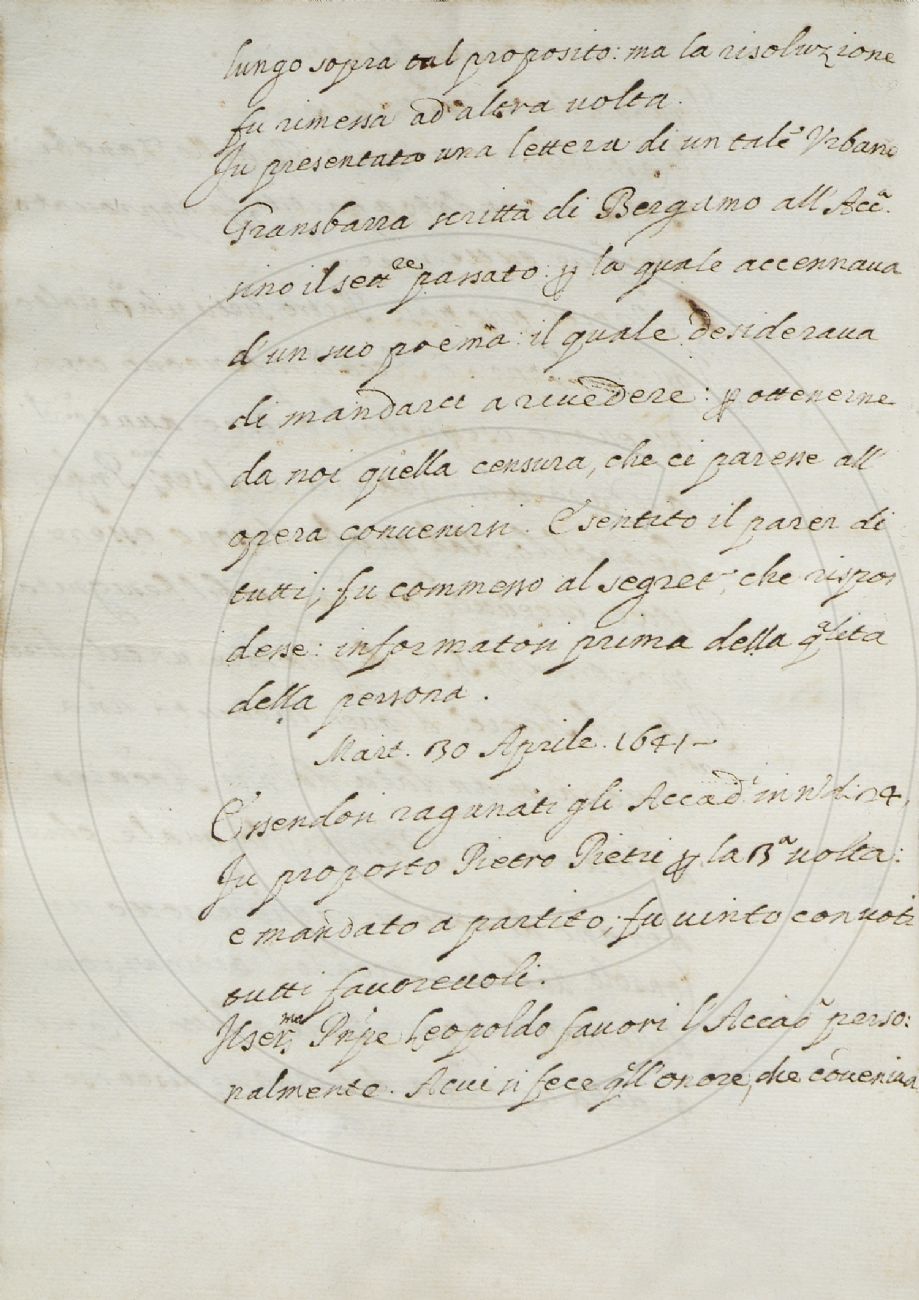 lungo sopra tal proposito: ma la risoluzione
fu rimessa ad altra volta.
Fu presentata una lettera di un tale Vrbano
Gransbarra scritta di Bergamo all' Acc.ª
sino il sett.re passato: ꝑ la quale accennaua
d'un suo poema: il quale desideraua
di mandarci a riuedere: ꝑ ottenerne
da noi quella censura, che ci paresse all'
opera conuenirsi. E sentito il parer di
tutti, fu commesso al segret.º, che rispon
desse: informatosi prima della q.alità
della persona.
Mart. 30 Aprile. 1641
Essendosi ragunati gli Accad.i in n.º di 24,
Fu proposto Pietro Pieri ꝑ la 3.ª uolta:
e mandato a partito, fu uinto con uoti
tutti fauoreuoli.
Il ser.mo Prīpe Leopoldo fauorì l'Accad.ª perso:
nalmente. A cui si fece q.ll'onore, che cōueniua